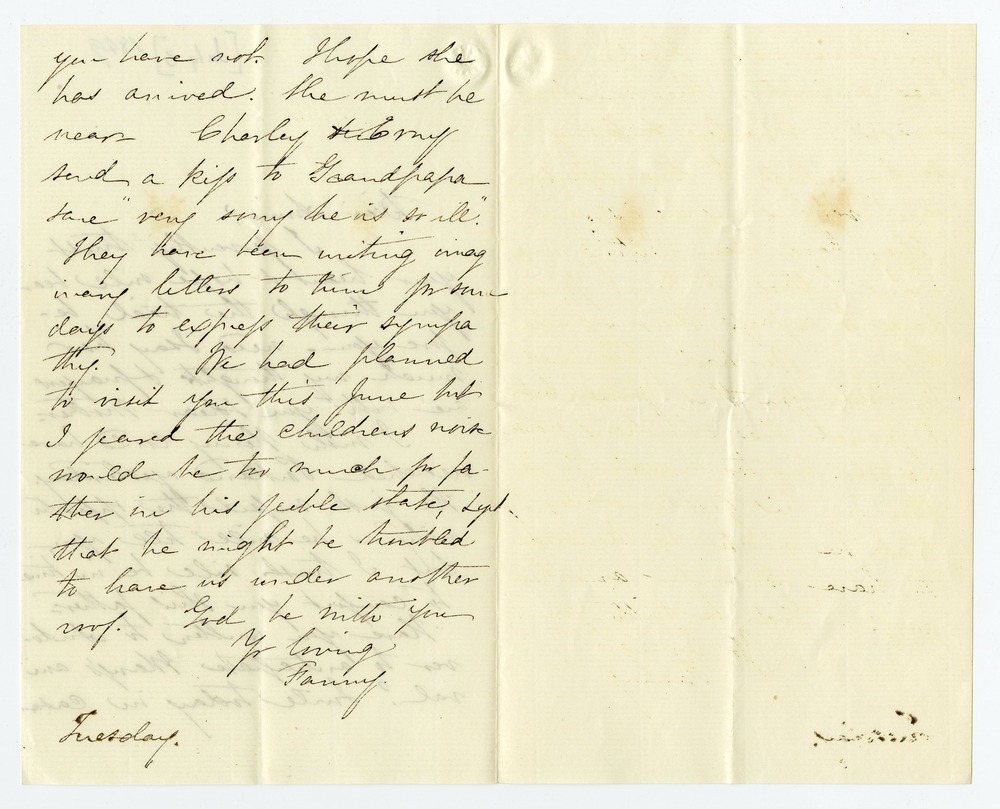 you have not. I hope she
has arrived. She must be
near Charley & Erny
send a kiss to Grandpapa
"very sorry he is so ill".
They have been writing imag
inary letters to him for some
days to express their sympa
thy. We had planned
to visit you this June but
I feared the childrens noise
would be too much for fa-
ther in his feeble state, &
that he might be troubled
to have us under another
roof. God be with you
Yr loving
Fanny.
Tuesday.